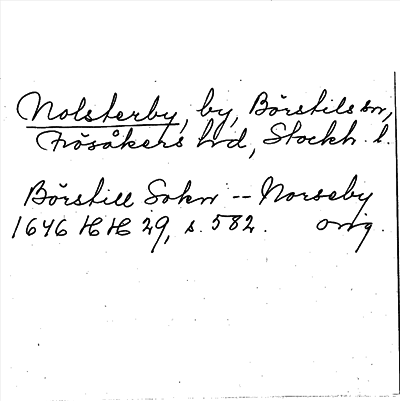 Nolsterby, by, Börstils sn,
Frösåkers hd, Stockh. l.
Börstill Sokn -- Norseby
1646 HH 29, s. 582. orig.